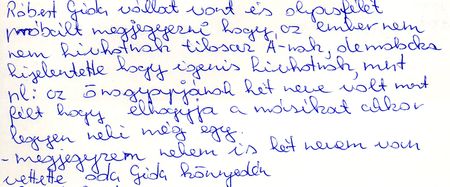 Róbert Gida vállat vont és olyasfélét
próbált megjegyezni hogy, az ember nem
nem hívhatnak tilosaz Á-nak, de malacka
kijelentette hogy igenis hívhatnak, mert
pl: az ő nagyapjának két neve volt mert
félt hogy elhagyja a másikat akkor
legyen neki még egy.
- megjegyzem nekem is két nevem van
vetette oda Gida könnyedén